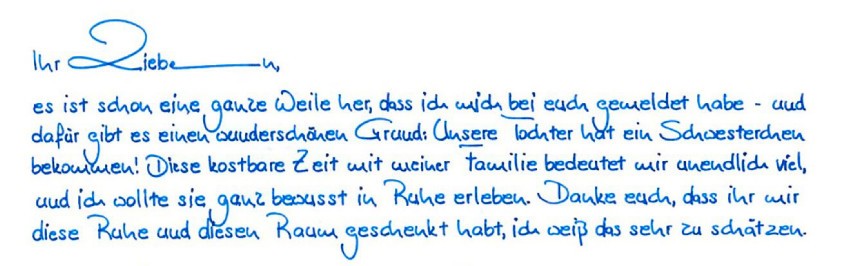 Ihr Lieben,
es ist schon eine ganze Weile her, dass ich mich bei euch gemeldet habe - und
dafür gibt es einen wunderschönen Grund: Unsere Tochter hat ein Schwesterchen
bekommen! Diese kostbare Zeit mit meiner Familie bedeutet mir unendlich viel,
und ich wollte sie ganz bewusst in Ruhe erleben. Danke euch, dass ihr mir
diese Ruhe und diesen Raum geschenkt habt, ich weiß das sehr zu schätzen.